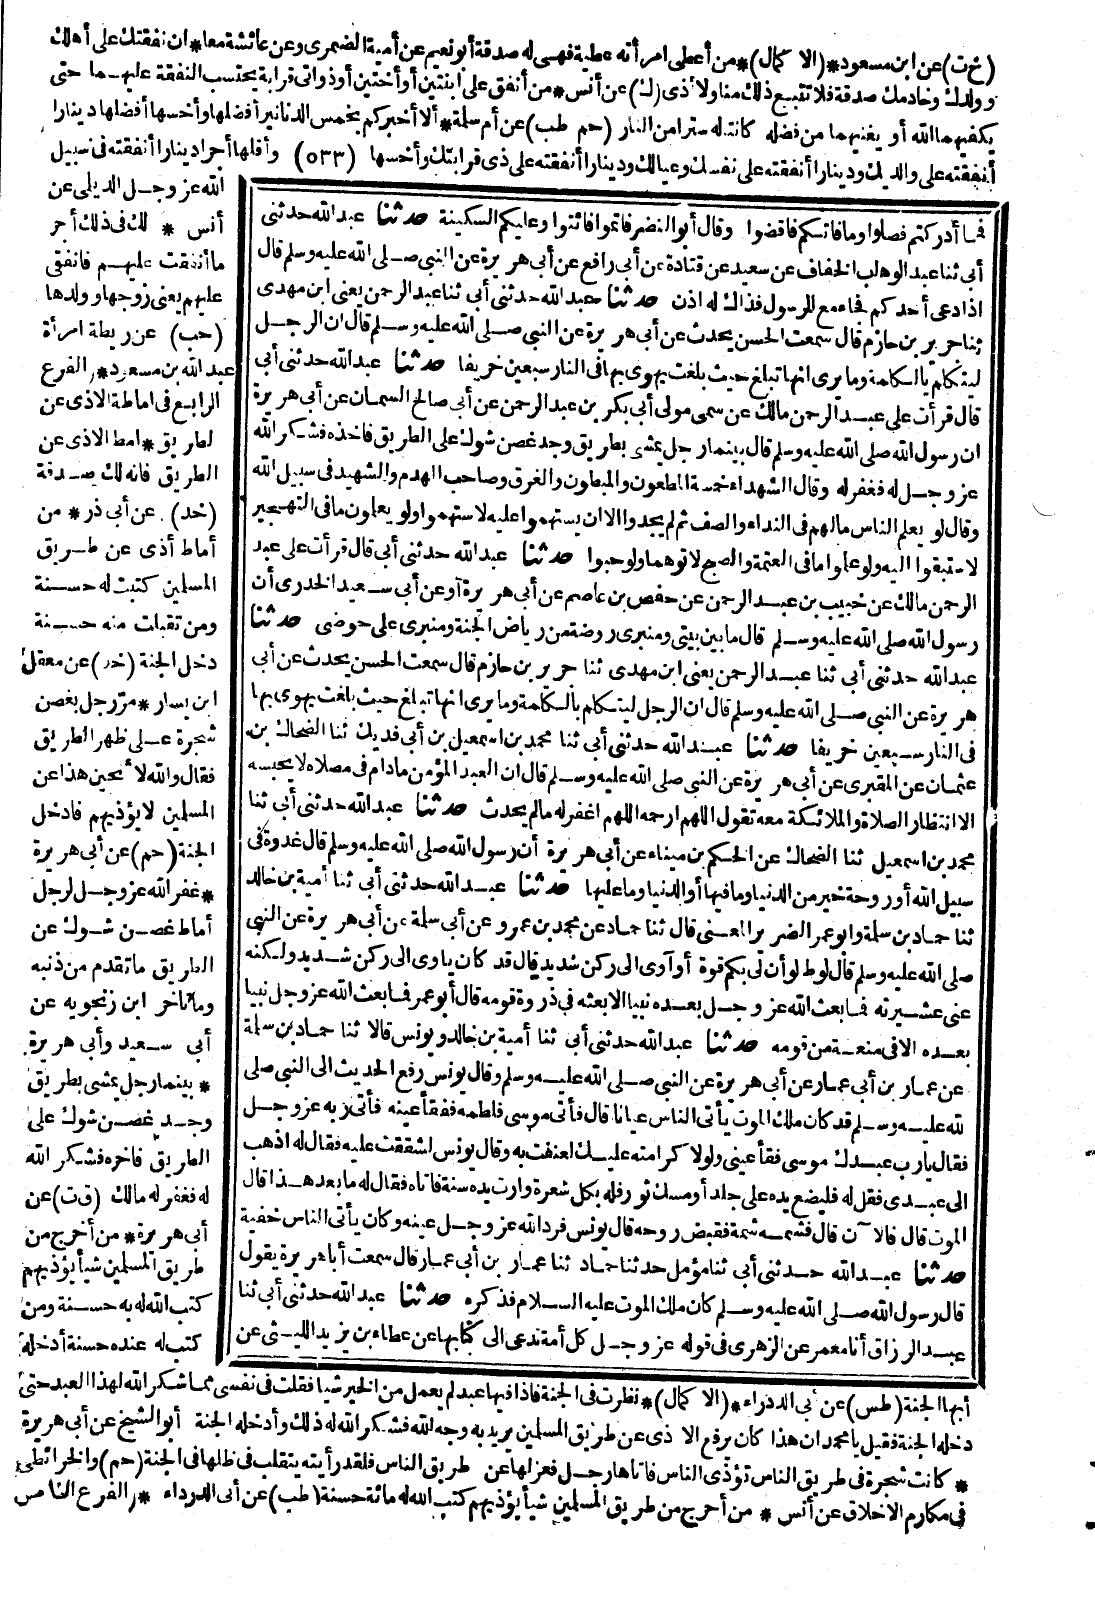 (خ ت) عن ابن مسعود * (الا كمال) * من أعطى امرأته عطية فهى له صدقة أبو نعيم عن أمية الضمرى وعن عائشة معا * ان نفقتك على أهلك
وولدك وخادمك صدقة فلا تتبع ذلك منا ولا أذى (ك) عن أنس * من أنفق على ابنتين أو أختين أو ذواتى قرابة يحتسب النفقة عليهما حتى
يكفيهما الله أو يغنيهما من فضله كانتا له سترا من النار (حم طب) عن أم سلمة * ألا أخبركم بخمس الدنانير أفضلها وأخسها أفضلها دينارا
أنفقته على والديك ودينارا أنفقته على نفسك وعيالك ودينارا أنفقته على ذى قرابتك وأخسها (٥٣٣) وأقلها أجرا دينارا أنفقته فى سبيل
الله عز وجل الديلمى عن
أنس * لك فى ذلك أجر
ما أنفقت عليهم فانفقى
عليهم يعنى زوجها وولدها
(حب) عن ريطة امرأة
عبد الله بن مسعود * الفرع
الرابع فى اماطة الاذى عن
لطريق * امط الاذى عن
الطريق فانه لك صدقة
(خد) عن أبى ذر * من
أماط أذى عن طريق
المسلمين كتبت له حسنة
ومن تقبلت منه حسنة
دخل الجنة (خد) عن معقل
ابن يسار * مرّ رجل بغصن
شجرة على ظهر الطريق
فقال والله لا نحين هذا عن
المسلمين لا يؤذيهم فادخل
الجنة (حم) عن أبى هريرة
* غفر الله عز وجل لرجل
أماط غصن شوك عن
الطريق ما تقدم من ذنبه
وما تأخر ابن زنجويه عن
أبى سعيد وأبى هريرة
* بينما رجل يمشى بطريق
وجد غصن شوك على
الطريق فاخره فشكر الله
له فغفر له مالك (ق ت) عن
أبى هريرة * من أخرج من
طريق المسلمين شيأ يؤذيهم
كتب الله له به حسنة ومن
كتب له عنده حسنة أدخله
فما أدركتم فصلوا وما فاتكم فاقضوا وقال أبو النضر فاتموا فائتوا وعليكم السكينة حدثنا عبد الله حدثنى
أبى ثنا عبد الوهاب الخفاف عن سعيد عن قتادة عن أبى رافع عن أبى هريرة عن النبى صلى الله عليه وسلم قال
اذا دعى أحدكم فجاء مع الرسول فذاك له اذن حدثنا عبد الله حدثنى أبى ثنا عبد الرحمن يعنى ابن مهدى
ثنا جرير بن حازم قال سمعت الحسن يحدث عن أبى هريرة عن النبى صلى الله عليه وسلم قال ان الرجل
ليتكلم بالكلمة وما يرى انها تبلغ حيث بلغت يهوى بها فى النار سبعين خريفا حدثنا عبد الله حدثنى أبى
قال قرأت على عبد الرحمن مالك عن سمى مولى أبى بكر بن عبد الرحمن عن أبى صالح السمان عن أبى هريرة
ان رسول الله صلى الله عليه وسلم قال بينما رجل يمشى بطريق وجد غصن شوك على الطريق فاخذه فشكر الله
عز وجل له فغفر له وقال الشهداء خمسة المطعون والمبطون والغرق وصاحب الهدم والشهيد فى سبيل الله
وقال لو يعلم الناس مالهم فى النداء والصف ثم لم يجدوا الا ان يستهموا عليه لاستهموا ولو يعلمون ما فى التهجير
لاستبقوا اليه ولو علموا ما فى العتمة والصبح لاتوهما ولو حبوا حدثنا عبد الله حدثنى أبى قال قرأت على عبد
الرحمن مالك عن خبيب بن عبد الرحمن عن حفص بن عاصم عن أبى هريرة أو عن أبى سعيد الخدرى أن
رسول الله صلى الله عليه وسلم قال ما بين بيتى ومنبرى روضة من رياض الجنة ومنبرى على حوضى حدثنا
عبد الله حدثنى أبى ثنا عبد الرحمن يعنى ابن مهدى ثنا جرير بن حازم قال سمعت الحسن يحدث عن أبى
هريرة عن النبى صلى الله عليه وسلم قال ان الرجل ليتكلم بالكلمة وما يرى انها تبلغ حيث بلغت يهوى بها
فى النار سبعين خريفا حدثنا عبد الله حدثنى أبى ثنا محمد بن اسمعيل بن أبى فديك ثنا الضحاك بن
عثمان عن المقبرى عن أبى هريرة عن النبى صلى الله عليه وسلم قال ان العبد المؤمن مادام فى مصلاه لا يحبسه
الا انتظار الصلاة والملائكة معه تقول اللهم ارحمه اللهم اغفر له مالم يحدث حدثنا عبد الله حدثنى أبى ثنا
محمد بن اسمعيل ثنا الضحاك عن الحكم بن ميناء عن أبى هريرة أن رسول الله صلى الله عليه وسلم قال غدوة فى
سبيل الله أو روحة خير من الدنيا وما فيها أو الدنيا وما عليها حدثنا عبد الله حدثنى أبى ثنا أمية بن خالد
ثنا حماد بن سلمة وابو عمر الضرير المعنى قال ثنا حماد عن محمد بن عمرو عن أبى سلمة عن أبى هريرة عن النبى
صلى الله عليه وسلم قال لوط لو أن لى بكم قوة أو آوى الى ركن شديد قال قد كان ياوى الى ركن شديد ولكنه
عنى عشيرته فما بعث الله عز وجل بعده نبيا الا بعثه فى ذروة قومه قال أبو عمر فما بعث الله عز وجل نبيا
بعده الا فى منعة من قومه حدثنا عبد الله حدثنى أبى ثنا أمية بن خالد ويونس قالا ثنا حماد بن سلمة
عن عمار بن أبى عمار عن أبى هريرة عن النبى صلى الله عليه وسلم وقال يونس رفع الحديث الى النبى صلى
لله عليه وسلم قد كان ملك الموت يأتى الناس عيانا قال فأتى موسى فلطمه ففقأ عينه فأتى ربه عز وجل
فقال يارب عبدك موسى فقأ عينى ولولا كرامته عليك لعنفت به وقال يونس لشققت عليه فقال له اذهب
الى عبدى فقل له فليضع يده على جلد أو مسك ثور فله بكل شعرة وارت يده سنة فاتاه فقال له ما بعد هذا قال
الموت قال فالآن قال فشمه شمة فقبض روحه قال يونس فرد الله عز وجل عينه وكان يأتى الناس خفية
حدثنا عبد الله حدثنى أبى ثنا مؤمل حدثنا حماد ثنا عمار بن أبى عمار قال سمعت أبا هريرة يقول
قال رسول الله صلى الله عليه وسلم كان ملك الموت عليه السلام فذكره حدثنا عبد الله حدثنى أبى ثنا
عبد الرزاق أنا معمر عن الزهرى فى قوله عز وجل كل أمة تدعى الى كتابها عن عطاء بن يزيد الليثى عن
أبها الجنة (طس) عن أبى الدرداء * (الا كمال) * نظرت فى الجنة فاذا فيها عبد لم يعمل من الخير شيا فقلت فى نفسى مما شكر الله لهذا العبد حتى
دخله الجنة فقيل يا محمد ان هذا كان يرفع الاذى عن طريق المسلمين يريد به وجه الله فشكر الله له ذلك وأدخله الجنة أبو الشيخ عن أبى هريرة
* كانت شجرة فى طريق الناس تؤذى الناس فاتاها رجل فعزلها عن طريق الناس فلقد رأيته يتقلب فى ظلها فى الجنة (حم) والخرائطى
فى مكارم الاخلاق عن أنس * من أخرج من طريق المسلمين شيأ يؤذيهم كتب الله له مائة حسنة (طب) عن أبى الدرداء * الفرع الخامس